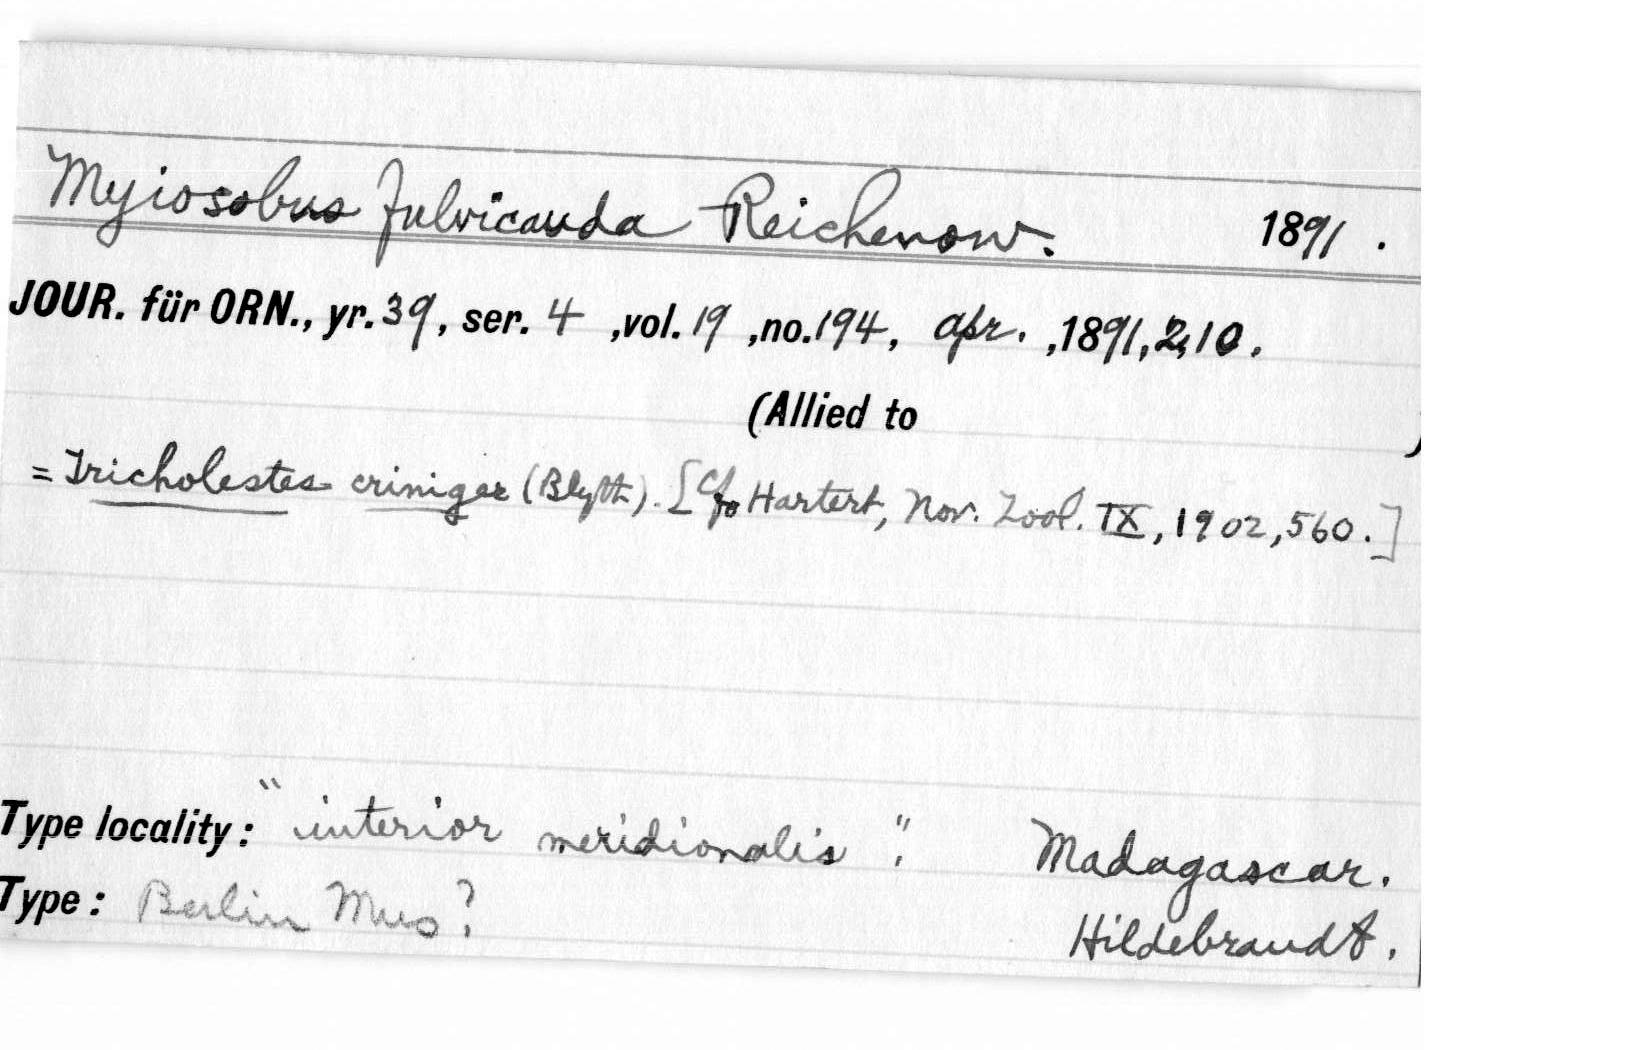 Myiosobus fulvicauda Reichenow. 1891.
JOUR. für ORN., yr. 39, ser. 4, vol. 19, no. 194, apr., 1891, 210.
(Allied to )
= Tricholestes criniger (Blyth). [Cf. Hartert, Nov. Zool. IX, 1902, 560.]
Type locality: "interior meridionalis". Madagascar.
Type: Berlin Mus? Hildebrandt.